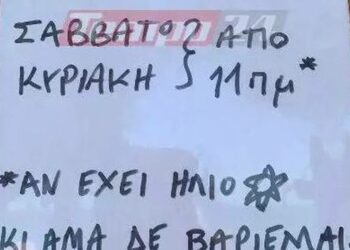 ΣΑΒΒΑΤΟ } ΑΠΟ
ΚΥΡΙΑΚΗ } 11πμ*
*ΑΝ ΕΧΕΙ ΗΛΙΟ
ΚΙ ΑΜΑ ΔΕ ΒΑΡΙΕΜΑΙ